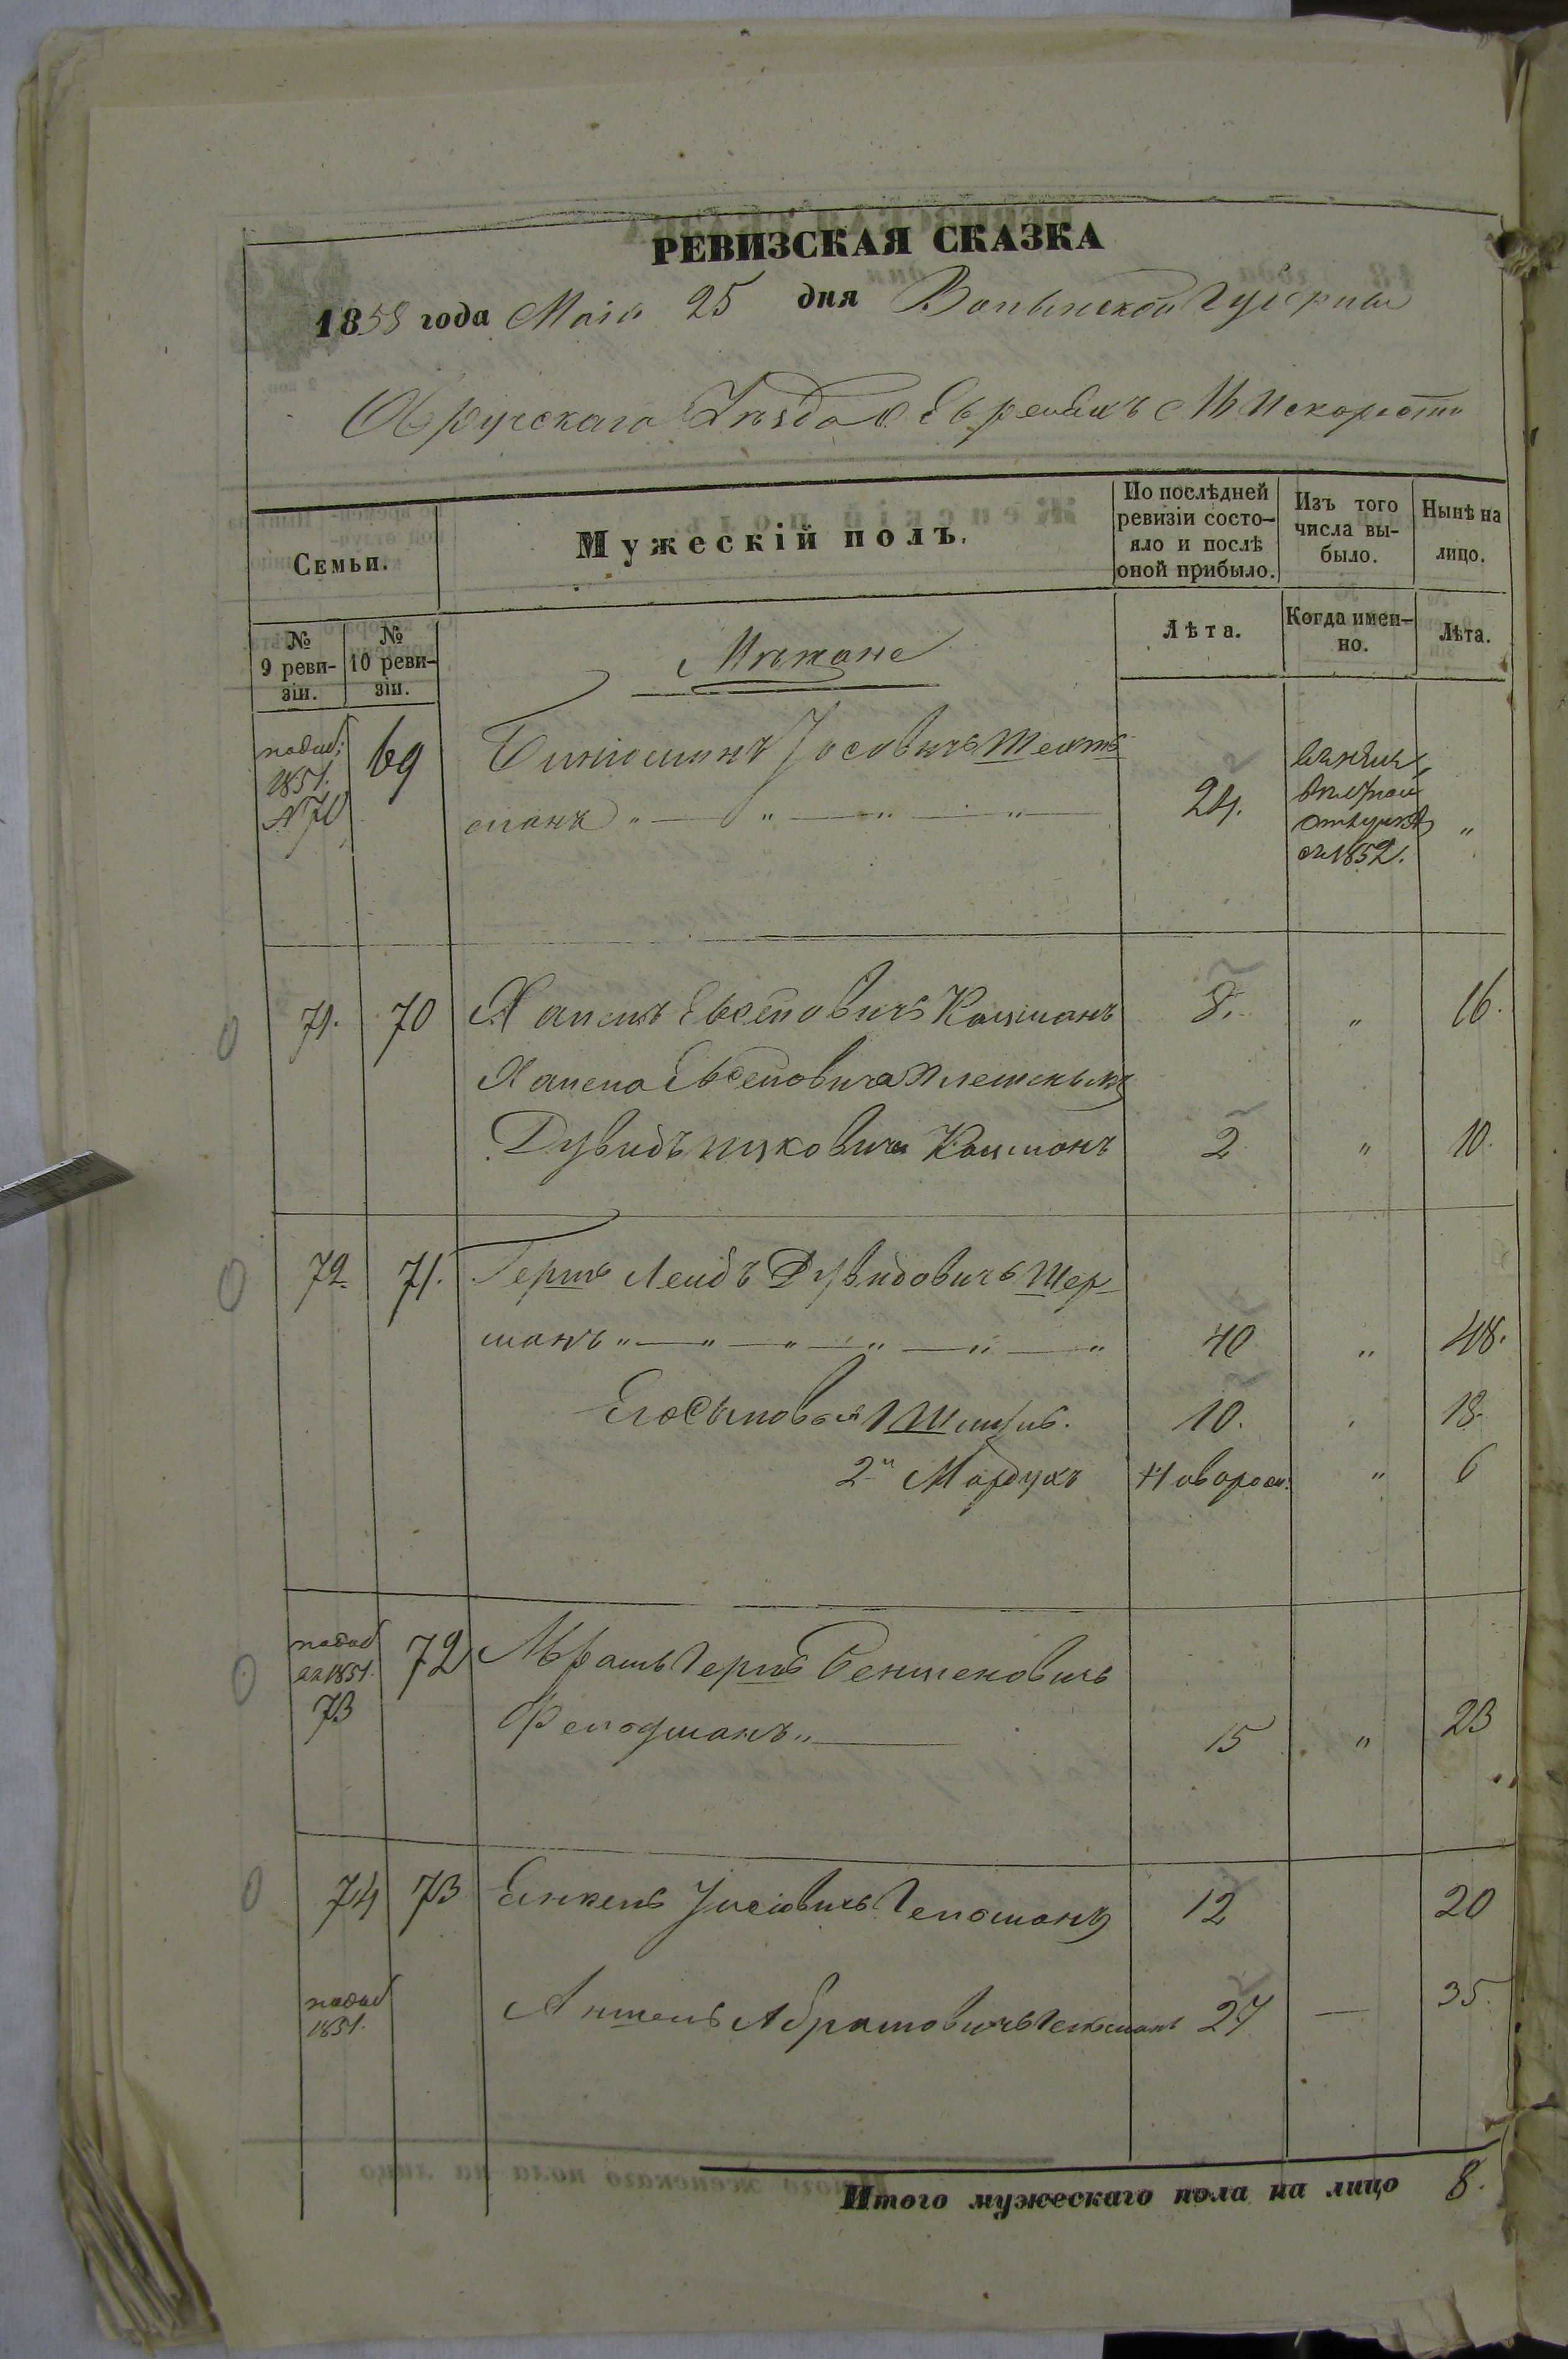 РЕВИЗСКАЯ СКАЗКА
1858 года Маія 25 дня Волынской Губерніи
Овручскаго Уѣзда о Евреяхъ М Искорости
Семьи.
Мужескій полъ.
По послѣдней ревизіи состо-яло и послѣ оной прибыло.
Изъ того числа вы-было.
Ныиѣ на лицо.
№ 9 реви-зіи.
№ 10 реви-зіи.
Лѣта.
Когда имен-но.
Лѣта.
Мѣщане
1851. №70 69 Биніоминъ Іосовичъ
манъ 24. отлучкѣ съ 1852. "
71. 70 Хаимъ Евсеповичъ Кацманъ 8. " 16.
Хаима Евсеповича племенникъ
Дувидъ Ицковичъ Кацманъ 2 " 10.
72 71. Гершъ Лейбъ Дувидовичъ Шер-
манъ 40 " 48.
Его Сыновья 1 10. " 18.
2й Мордухъ Новорож: " 6
1851. 73 72 Гершъ
15 " 23
74 73 Янкель Іосіовичъ Гельманъ 12 20
1851. Аншель Абрамовичъ Гельманъ 27 — 35.
Итого мужескаго пола на лицо 8.